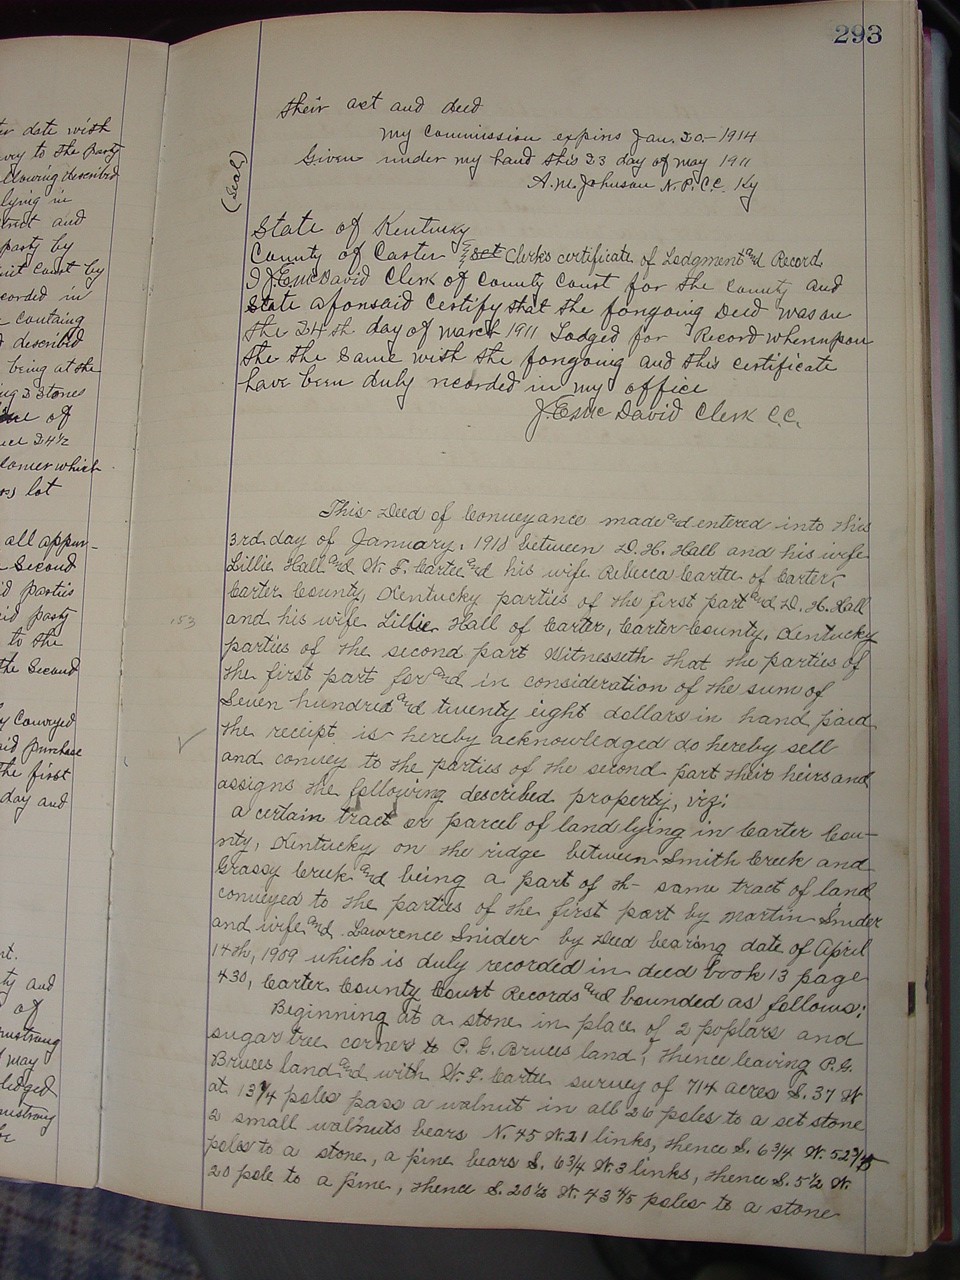 293
their act and deed
My Commission expires Jan. 20.- 1914
Given under my hand this 23 day of May 1911
A. M. Johnson N. P. C. C. Ky
(Seal)
State of Kentucky
County of Carter } Sct Clerks certificate of Lodgment and Record
I J. E. McDavid Clerk of County Court for the County and
State aforesaid Certify that the forgoing Deed was on
the 24th day of march 1911 Lodged for Record whereupon
the the Same with the forgoing and this certificate
have been duly recorded in my office
J. E. McDavid Clerk C.C.
This Deed of Conveyance made and entered into this
3rd, day of January, 1910 between D. H. Hall and his wife
Lillie Hall and W. F. Cartee and his wife Rebecca Cartee of Carter,
Carter County, Kentucky parties of the first part and D. H. Hall
and his wife Lillie Hall of Carter, Carter County, Kentucky
153
parties of the second part Witnesseth that the parties of
the first part for and in consideration of the sum of
Seven hundred and twenty eight dollars in hand paid
the receipt is hereby acknowledged do hereby sell
and convey to the parties of the second part their heirs and
assigns the following described property, viz:
a certain tract or parcel of land lying in Carter Cou-
nty, Kentucky on the ridge between Smith Creek and
Grassy Creek and being a part of th- same tract of land
conveyed to the parties of the first part by Martin Snider
and wife and Lawrence Snider by Deed bearing date of April
14th, 1909 which is duly recorded in deed book 13 page
430, Carter County Court Records and bounded as follows:
Beginning at a stone in place of 2 poplars and
sugar tree corner to P. G. Bruces land, thence leaving P.G.
Bruces land and with W. F. Cartee survey of 714 acres S. 37 W
at 13 1/4 poles pass a walnut in all 26 poles to a set stone
2 small walnuts bears N. 45 W. 21 links, thence S. 6 3/4 W. 52
poles to a stone, a pine bears S. 6 3/4 W. 3 links, thence S. 5 1/2 W.
20 pole to a pine, thence S. 20 1/2 W. 43 4/5 poles to a stone
ter date with
vey to the Party
llowing described
lying in
trict and
party by
uit Court by
ecorded in
containg
d described
being at the
ng 3 Stones
line of
34 1/2
Corner which
lot
all appur-
Second
id Parties
id party
to the
the Second
y Conveyed
aid purchase
the first
day and
nt.
ty and
of
mstrong
May
ledged
mstrong